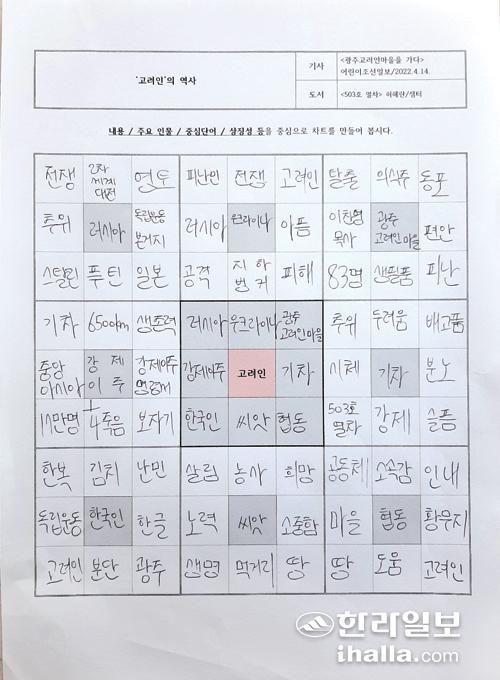 '고려인'의 역사
기사 <광주고려인마을을 가다>
어린이조선일보/2022.4.14.
도서 <503호 열차> 허혜란/샘터
내용 / 주요 인물 / 중심단어 / 상징성 등을 중심으로 차트를 만들어 봅시다.
전쟁 2차 세계 대전 영토 피난민 전쟁 고려인 탈출 의식주 동포
추위 러시아 독립운동 본거지 러시아 우크라이나 아픔 이천영 목사 광주 고려인마을 편안
스탈린 푸틴 일본 공격 지하 벙커 피해 83명 생필품 피난
기차 6500km 생존력 러시아 우크라이나 광주 고려인마을 추위 두려움 배고픔
중앙 아시아 강제 이주 강제이주 명령서 강제이주 고려인 기차 시체 기차 분노
17만명 죽음 보자기 한국인 씨앗 협동 503호 열차 강제 슬픔
한복 김치 난민 살림 농사 희망 공동체 소속감 인내
독립운동 한국인 한글 노력 씨앗 소중함 마을 협동 황무지
고려인 분단 광주 생명 먹거리 땅 땅 도움 고려인
한라일보
ihalla.com